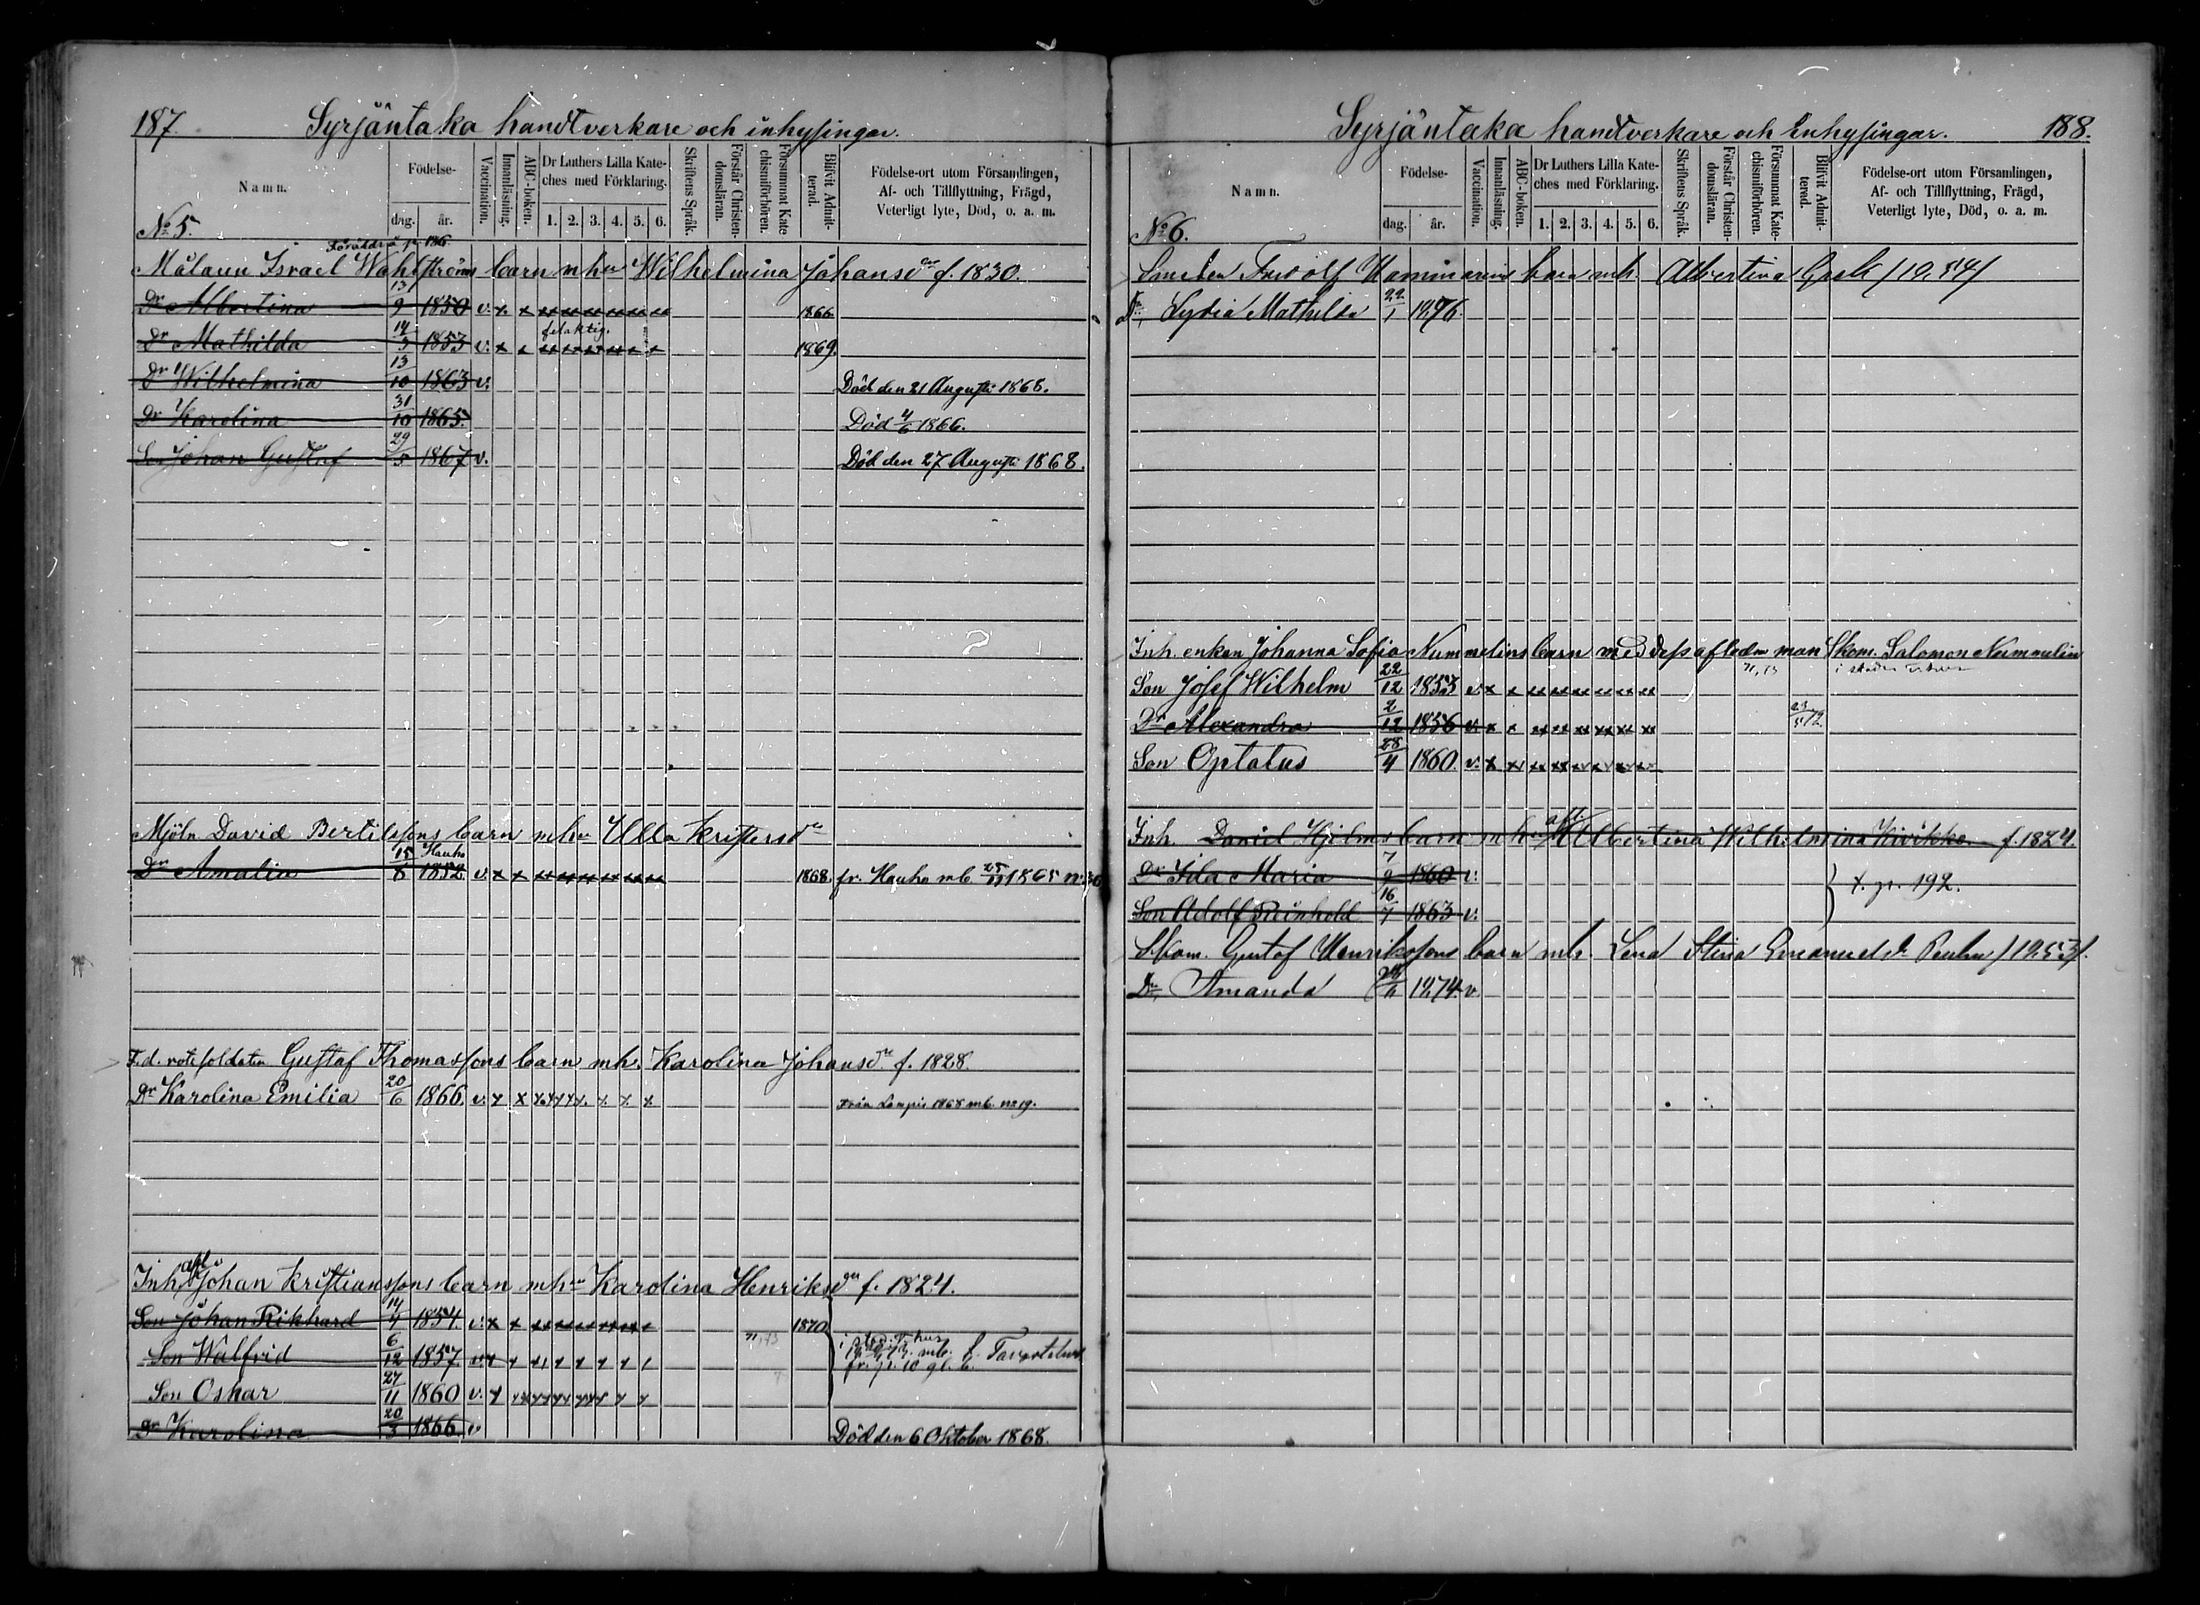 187. Syrjäntaka handtverkare och inhysingar.
Namn.
Födelse-
dag. år.
Vaccination.
Innanläsning.
ABC-boken.
Dr Luthers Lilla Kate-
ches med Förklaring.
1. 2. 3. 4. 5. 6.
Skriftens Språk.
Förstår Christen-
domsläran.
Försummat Kate-
chismiförhören.
Blifvit Admit-
terad.
Födelse-ort utom Församlingen,
Af- och Tillflyttning, Frägd,
Veterligt lyte, Död, o. a. m.
No 5.
Föräldrar p. 186
Målaren Israel Wahlströms barn mhu Wilhelmina Johansdr f. 1830.
Dr Albertina 13/9 1850 v. x x 1866
Dr Mathilda 14/3 1853 v. x x felaktig. 1869.
Dr Wilhelmina 13/10 1863 v. Död den 21 Augusti 1868.
Dr Karolina 31/10 1865. Död 4/6 1866.
Son Johan Gustaf 29/5 1867 v. Död den 27 Augusti 1868.
Mjöln. David Bertilssons barn mhu Ulla Kristersdr
Dr Amalia 15/8 Hauho 1852 v. x x 1868. fr. Hauho mb. 1865 no 30
F.d. rotesoldaten Gustaf Thomassons barn mh. Karolina Johansdr f. 1828.
Dr Karolina Emilia 20/6 1866. v. x x x x x x. x x x Från Lampis 1868 mb. no 19.
Inh. afl. Johan Kristianssons barn mhu Karolina Henriksdr f. 1824.
Son Johan Rikhard 14/4 1854. v. x x 1870
Son Walfrid 6/12 1857. mb. f. Tavastehus
Son Oskar 27/11 1860 v. x
Dr Karolina 20/3 1866. v. Död den 6 Oktober 1868.
Syrjäntaka handtverkare och Inhysingar. 188.
Namn.
Födelse-
dag. år.
Vaccination.
Innanläsning.
ABC-boken.
Dr Luthers Lilla Kate-
ches med Förklaring.
1. 2. 3. 4. 5. 6.
Skriftens Språk.
Förstår Christen-
domsläran.
Försummat Kate-
chismiförhören.
Blifvit Admit-
terad.
Födelse-ort utom Församlingen,
Af- och Tillflyttning, Frägd,
Veterligt lyte, Död, o. a. m.
No 6.
barn mh. Albertina
Dr Lydia Mathilda 22/1 1876.
Inh. enkan Johanna Sofia Nummelins barn med dess afledne man Skom. Salomon Nummelin
Son Josef Wilhelm 22/12 1853 v. x x
Dr Alexandra 2/12 1856 v. x x
Son Optatus 28/4 1860. v. x x
Inh. Daniel Hjelms barn mhu afl. Albertina Wilhelmina Kivikko f. 1824.
Dr Ida Maria 7/9 1860 v.
Son Adolf Reinhold 16/7 1863 v. } t. p. 192.
Skom. Gustaf Henrikssons barn mh. Lena Stina Emanuelsdr
Dr Amanda 1874. v.